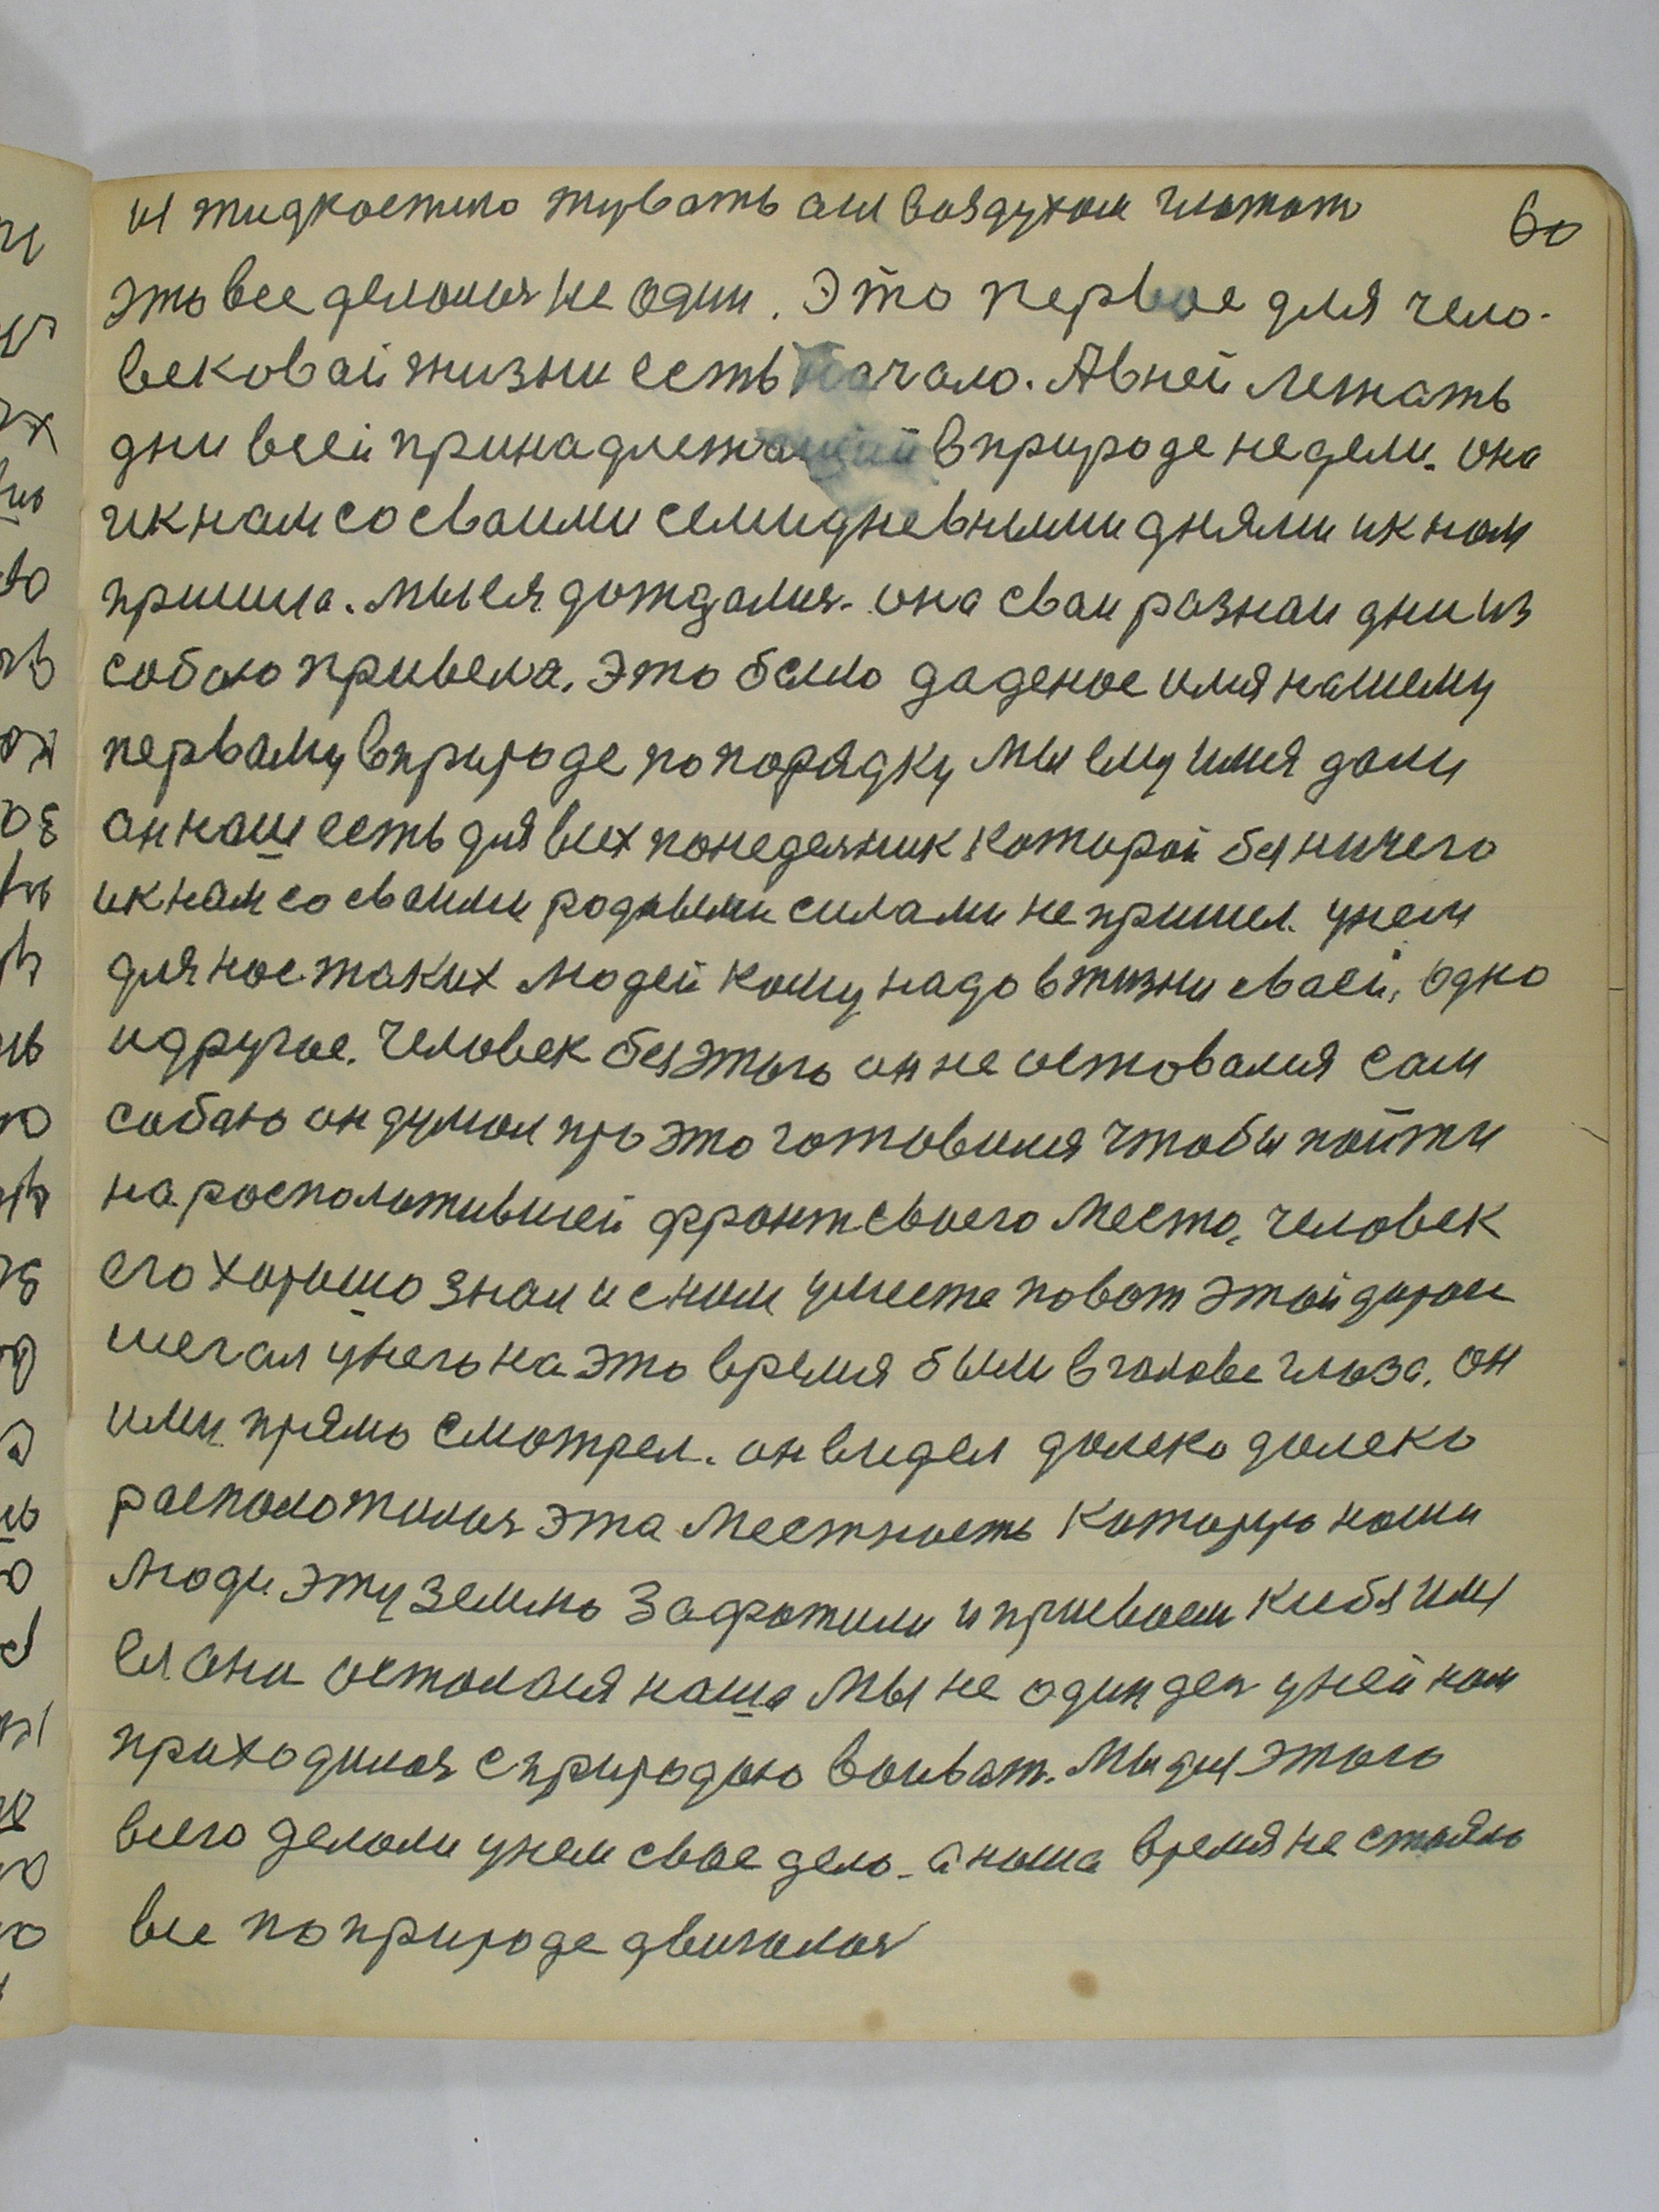 60
и жидкостию жувать али воздухом глотат
это все делалися не один. Это первое для чело-
вековай жизни есть начало. А вней лежать
дни всей принадлежащий в природе недели. она
ик нам со сваими семидневными днями ик нам
пришла. Мы ея дождалися. она сваи разнаи дни из
собою привела. Это было даденое имя нашему
первому в природе по порядку мы ему имя дали
ан наш есть для всех понедельник каторай без ничего
ик нам со сваими родными силами не пришел. унем
для нас таких людей кому надо в жизни сваей, одно
и другое. Человек без этого он не оставался сам
собаю он думал про это готовился чтобы пойти
на росположившей фронт своего место, человек
его хорошо знал и с ним умести повот этай дороги
шегал унего на это время были в голове глаза. он
ими прямо смотрел. он видел далеко далеко
расположилися эта местность каторую наши
люди эту землю
ея они осталася наша мы не один ден уней нам
приходилося с природою воиват. Мы для этого
всего делали унем свое дело. а наша время не стояло
все по природе двигалося